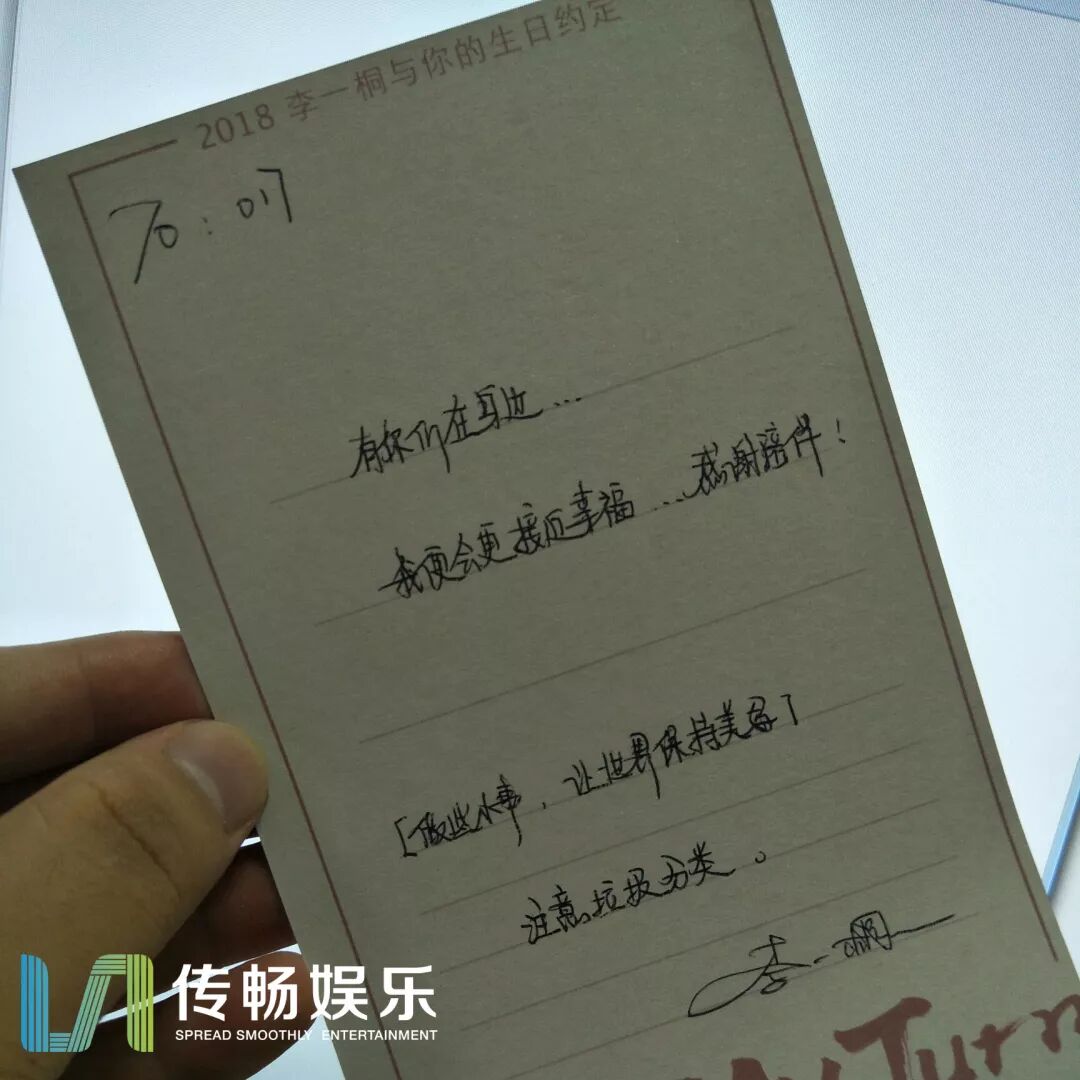 2018 李一桐与你的生日约定
有你们在耳边...
我便会更接近幸福...感谢陪伴!
[做些小事,让世界保持美好]
注意垃圾分类。
李一桐
My Turn
传畅娱乐
SPREAD SMOOTHLY ENTERTAINMENT